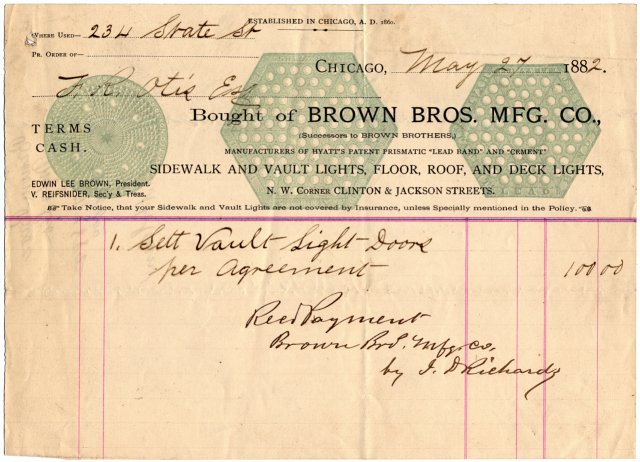 ESTABLISHED IN CHICAGO, A. D. 1860.
WHERE USED— 234 State St
PR. ORDER OF—
CHICAGO, May 27 1882.
Otis Esq
Bought of BROWN BROS. MFG. CO.,
(Successors to BROWN BROTHERS,)
TERMS
CASH.
MANUFACTURERS OF HYATT'S PATENT PRISMATIC "LEAD BAND" AND "CEMENT"
SIDEWALK AND VAULT LIGHTS, FLOOR, ROOF, AND DECK LIGHTS,
EDWIN LEE BROWN, President.
V. REIFSNIDER, Sec'y & Treas.
N. W. CORNER CLINTON & JACKSON STREETS.
Take Notice, that your Sidewalk and Vault Lights are not covered by Insurance, unless Specially mentioned in the Policy.
1. Sett Vault Light Doors
per Agreement 100 00
Recd Payment
Brown Brs. Mfg. Co.
by J. D Richards